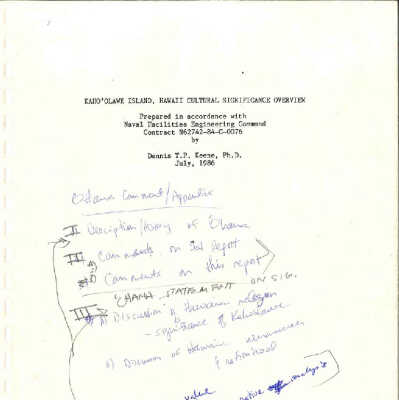 KAHO'OLAWE ISLAND, HAWAII CULTURAL SIGNIFICANCE OVERVIEW
Prepared in accordance with
Naval Facilities Engineering Command
Contract N62742-84-C-0076
by
Dennis T.P. Keene, Ph.D.
July, 1986
Ohana Comment/Appendix
I Description/History of Ohana
II Comments on Report
Comments on this report
OHANA STATEMENT ON SIG.
III Discussion of Hawaiian religion
- significance of Kahoolawe
Discussion of Hawaiian
& nationhood
value
native analysis